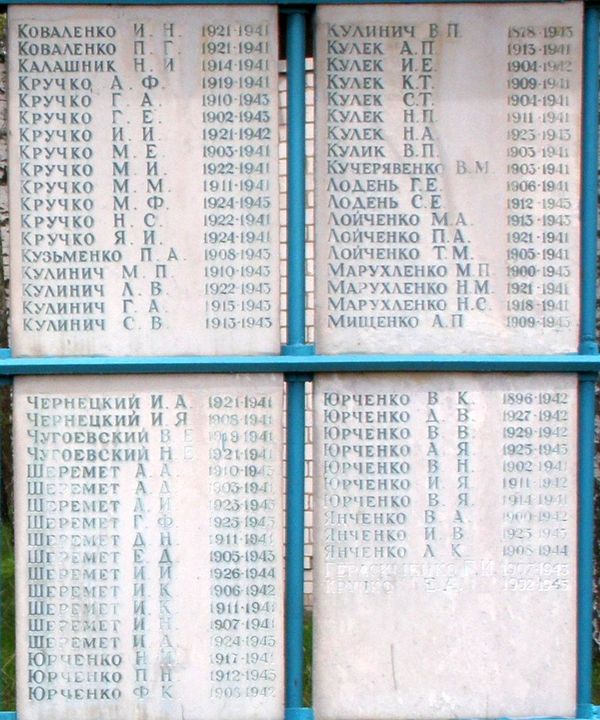 Коваленко И. Н. 1921-1941
Коваленко П. Г. 1921-1941
Калашник Н. И 1914-1941
Кручко А. Ф. 1919-1941
Кручко Г. А. 1910-1943
Кручко Г. Е. 1902-1943
Кручко И. И. 1921-1942
Кручко М. Е 1903-1941
Кручко М. И. 1922-1941
Кручко М. М 1911-1941
Кручко М. Ф. 1924-1943
Кручко Н. С. 1922-1941
Кручко Я. И. 1924-1941
Кузьменко П. А. 1908-1943
Кулинич М. П. 1910-1943
Кулинич Л. В. 1922-1943
Кулинич Г. А. 1913-1943
Кулинич С. В. 1913-1943
Кулинич В. П. 1878-1943
Кулек А. П 1913-1941
Кулек И. Е. 1904-1942
Кулек К. Т. 1909-1941
Кулек С. Т. 1904-1941
Кулек Н. П 1911-1941
Кулек Н. А. 1923-1943
Кулик В. П. 1903-1941
Кучерявенко В. М. 1903-1941
Лодень Г. Е. 1906-1941
Лодень С. Е. 1912-1943
Лойченко М. А. 1913-1943
Лойченко П. А. 1921-1941
Лойченко Т. М. 1905-1941
Марухленко М. П 1900-1943
Марухленко Н. М. 1921-1941
Марухленко Н. С. 1918-1941
Мищенко А. П 1909-1943
Чернецкий И. А. 1921-1941
Чернецкий И. Я 1908-1941
Чугоевский В Е 1919-1941
Чугоевский Н. Е 1921-1941
Шеремет А. А. 1910-1943
Шеремет А. 1903-1941
Шеремет И 1923-1943
Шеремет Г. Ф. 1925-1943
Шеремет Д. Н. 1911-1941
Шеремет Е. Д. 1905-1943
Шеремет И. И 1926-1944
Шеремет И. К 1906-1942
Шеремет И. К. 1911-1941
Шеремет И. Н. 1907-1941
Шеремет И. А. 1924-1943
Юрченко Н. 1917-1941
Юрченко П. Н. 1912-1943
Юрченко Ф. К. 1903-1942
Юрченко В. К. 1896-1942
Юрченко Д. В. 1927-1942
Юрченко В. В. 1929-1942
Юрченко А. Я. 1925-1943
Юрченко В. Н. 1902-1941
Юрченко И. Я. 1911-1942
Юрченко В. Я. 1914-1941
Янченко В. А. 1900-1942
Янченко И. В. 1923-1943
Янченко Л. К. 1908-1944
Кручко Е. А.